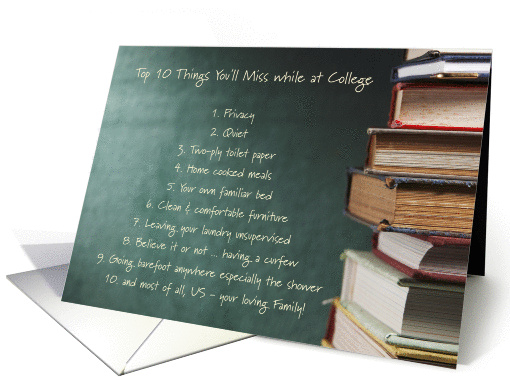 Top 10 Things You'll Miss while at College
1. Privacy
2. Quiet
3. Two-ply toilet paper
4. Home cooked meals
5. Your own familiar bed
6. Clean & comfortable furniture
7. Leaving your laundry unsupervised
8. Believe it or not ... having a curfew
9. Going barefoot anywhere especially the shower
10. and most of all, US - your loving Family!